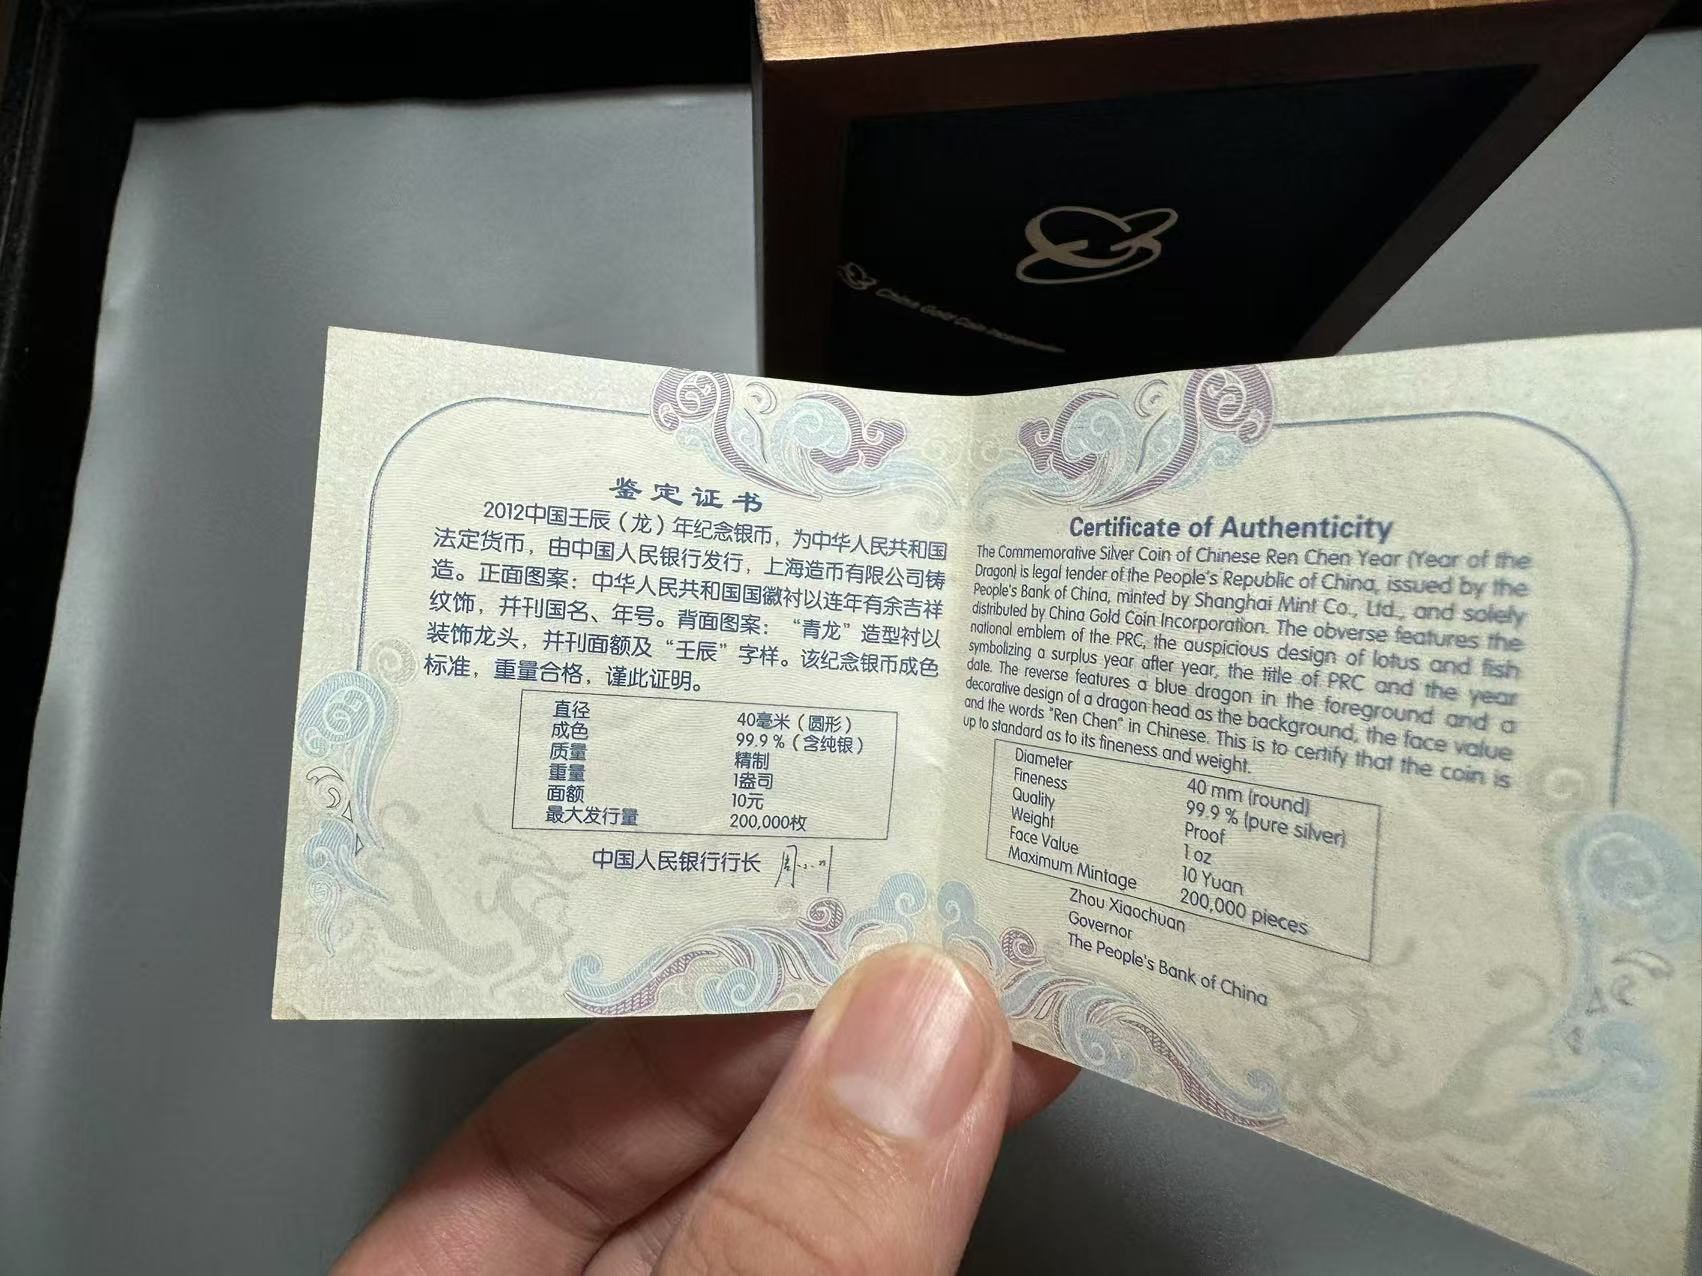 China Gold Coin Incorporation
鉴定证书
2012中国壬辰（龙）年纪念银币，为中华人民共和国
法定货币，由中国人民银行发行，上海造币有限公司铸
造。正面图案：中华人民共和国国徽衬以连年有余吉祥
纹饰，并刊国名、年号。背面图案：“青龙”造型衬以
装饰龙头，并刊面额及“壬辰”字样。该纪念银币成色
标准，重量合格，谨此证明。
直径 40毫米（圆形）
成色 99.9％（含纯银）
质量 精制
重量 1盎司
面额 10元
最大发行量 200,000枚
中国人民银行行长
Certificate of Authenticity
The Commemorative Silver Coin of Chinese Ren Chen Year (Year of the
Dragon) is legal tender of the People's Republic of China, issued by the
People's Bank of China, minted by Shanghai Mint Co., Ltd., and solely
distributed by China Gold Coin Incorporation. The obverse features the
national emblem of the PRC, the auspicious design of lotus and fish
symbolizing a surplus year after year, the title of PRC and the year
date. The reverse features a blue dragon in the foreground and a
decorative design of a dragon head as the background, the face value
and the words "Ren Chen" in Chinese. This is to certify that the coin is
up to standard as to its fineness and weight.
Diameter 40 mm (round)
Fineness 99.9 % (pure silver)
Quality Proof
Weight 1 oz
Face Value 10 Yuan
Maximum Mintage 200,000 pieces
Zhou Xiaochuan
Governor
The People's Bank of China